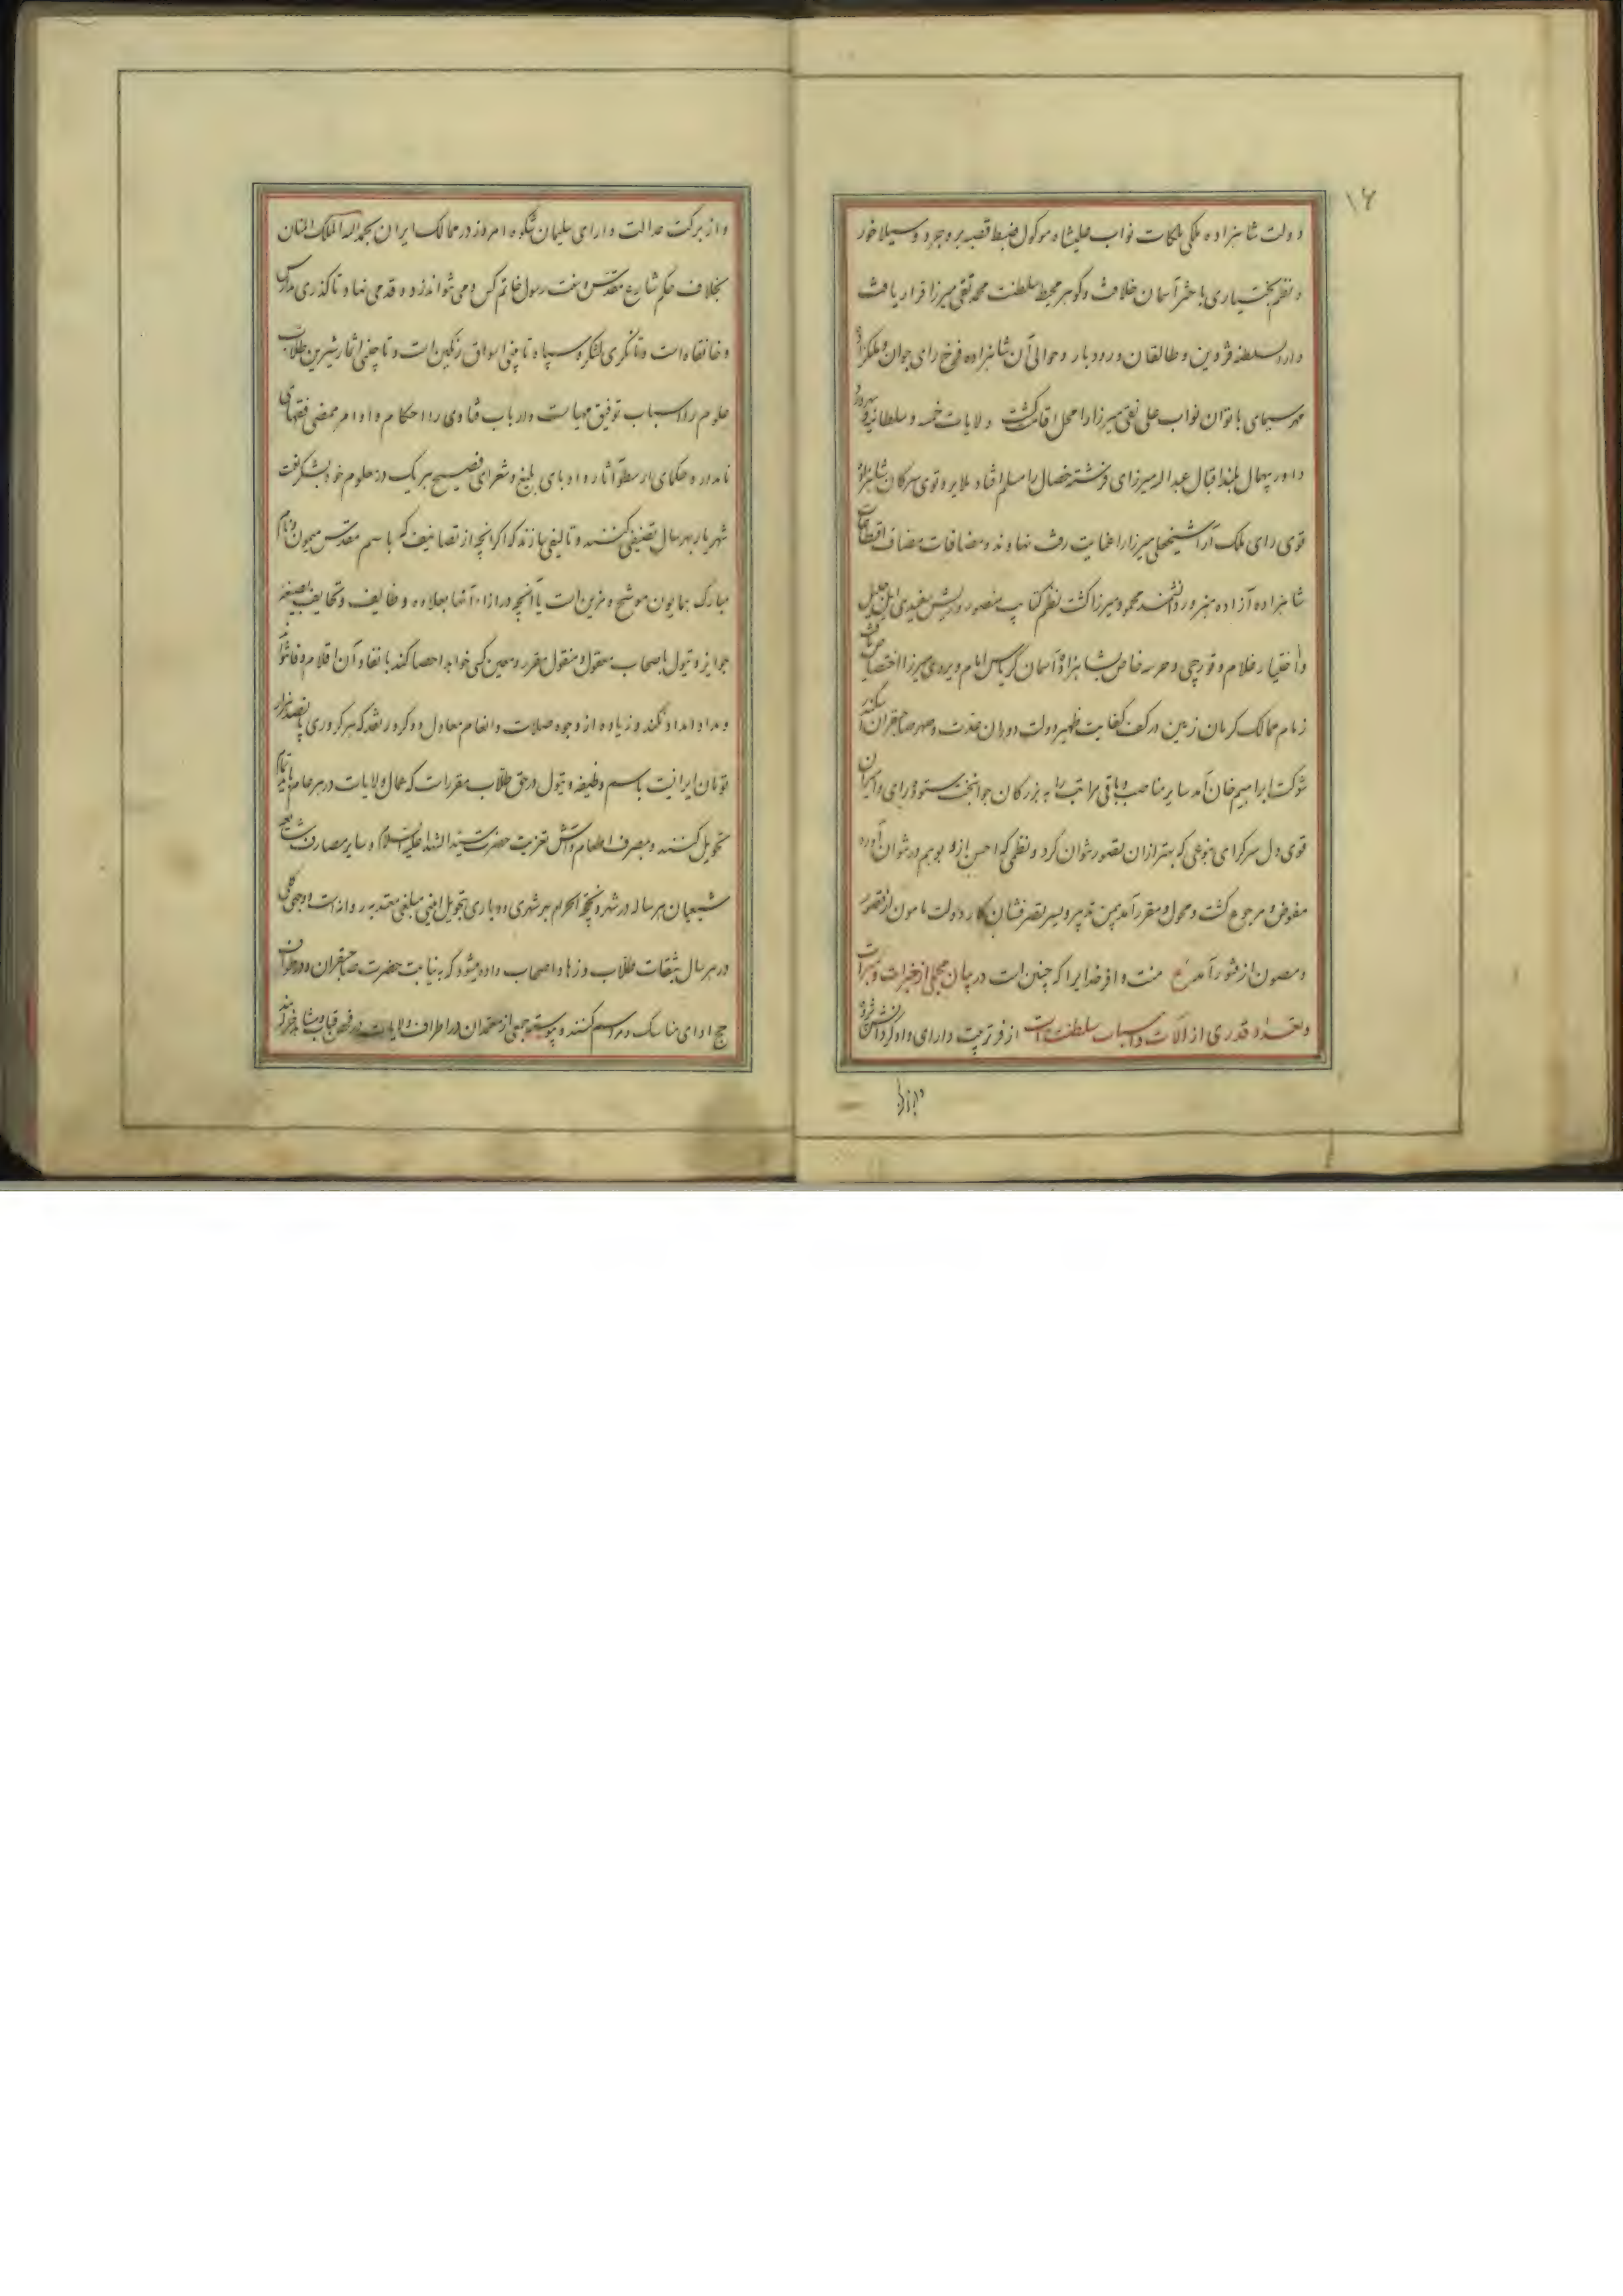 ۱۶
دولت شاهزاده ملکی ملکات نواب علیشاه موکول ضبط قصبه بروجرد و سیلاخور
و نظم بختیاری با حشر آسمان خلافت و گوهر محیط سلطنت محمد تقی میرزا قرار یافت
دارالسلطنه قزوین و طالقان و رودبار و حوالی آن شاهزاده فرخ رای جوان و ملکزاده
مهر سیمای با توان نواب علی نقی میرزا را محل اقامت گشت ولایات خمسه و سلطانیه و سهرورد
داور بیهمال بلند اقبال عبدالله میرزای فرشته خصال را مسلم افتاد ملایر و توی سرکان شاهزاده
قوی رای ملک آرا شیخعلی میرزا را عنایت رفت نهاوند و مضافات مضاف اقطاعات
شاهزاده آزاده هنرور دانشمند محمود میرزا گشت نظم کتایب منصور و ریش سفیدی ایل جلیل
و اختیار غلام و قورچی و حرسه خاص بشاهزاده آسمان کریاس امام ویردی میرزا اختصاص یافت
زمام ممالک کرمان زمین در کف کفایت ظهیر دولت دوران عدت و صهر صاحبقران سکندر
شوکت ابراهیم خان آمد سایر مناصب و باقی مراتب را به بزرگان جوانبخت ستوده رای و امیران
قوی دل سرکرای بنوعی که بهتر از آن تصور نتوان کرد و نظمی که احسن از او بوهم در نتوان آورد
مفوض و مرجوع گشت و محول و مقرر آمد بیمن تدبیر و یسر تصرفشان کار دولت مامون از قصور
و مصون از فتور آمد ع منت وافر خدایرا که چنین است در بیان مجملی از خیرات و مبرات
و تعداد قدری از آلات و اسباب سلطنت است از فر تربیت دارای دادگر دانش فزود
و از برکت
و از برکت عدالت دارای سلیمان شکوه امروز در ممالک ایران بحمدالله الملک المنان
بخلاف حکم شارع مقدس و سنت رسول خاتم کس دمی نتواند زد و قدمی نهاد تا گذری مدارس
و خانقاه است و تا نگری لشکر و سپاه تا چنی اوراق رنگین است و تا چنی اثمار شیرین طلاب
علوم را اسباب توفیق مهیاست و ارباب فتاوی را احکام و اوامر ممضی فقهای
نامدار و حکمای ارسطو آثار و ادبای بلیغ و شعرای فصیح هر یک در علوم خود بشکر نعت
شهریار بهر سال تصنیفی کنند و تالیفی سازند که اگر آنچه از تصانیف که باسم مقدس میمون و نام
مبارک همایون موشح و مزین است یا آنچه در ازاء آنها بعلاوه وظایف و تحایف بصیغه
جوایز و تیول باصحاب معقول و منقول مقرر و معین کسی خواهد احصا کند با نفاد آن اقلام وفا نتواند
و مداد امداد نکند و زیاده از وجوه صلات و انعام معادل دو کرور نقد که هر کروری پانصد هزار
تومان ایرانیست باسم وظیفه و تیول در حق طلاب مقرر است که عمال ولایات در هر عام بالتمام
تحویل کنند و بمصرف اطعام و آتش تعزیت حضرت سید الشهدا علیه السلام و سایر مصارف
شیعیان هر ساله در شهر ذیحجة الحرام بهر شهری و دیاری بتحویل امینی مبلغی معتد به روانه است و وجهی کلی
در هر سال بثقات طلاب و زهاد اصحاب داده میشود که به نیابت حضرت صاحبقران دوران
حج ادای مناسک و مراسم کنند و پیوسته جمعی از معتمدان در اطراف ولایات